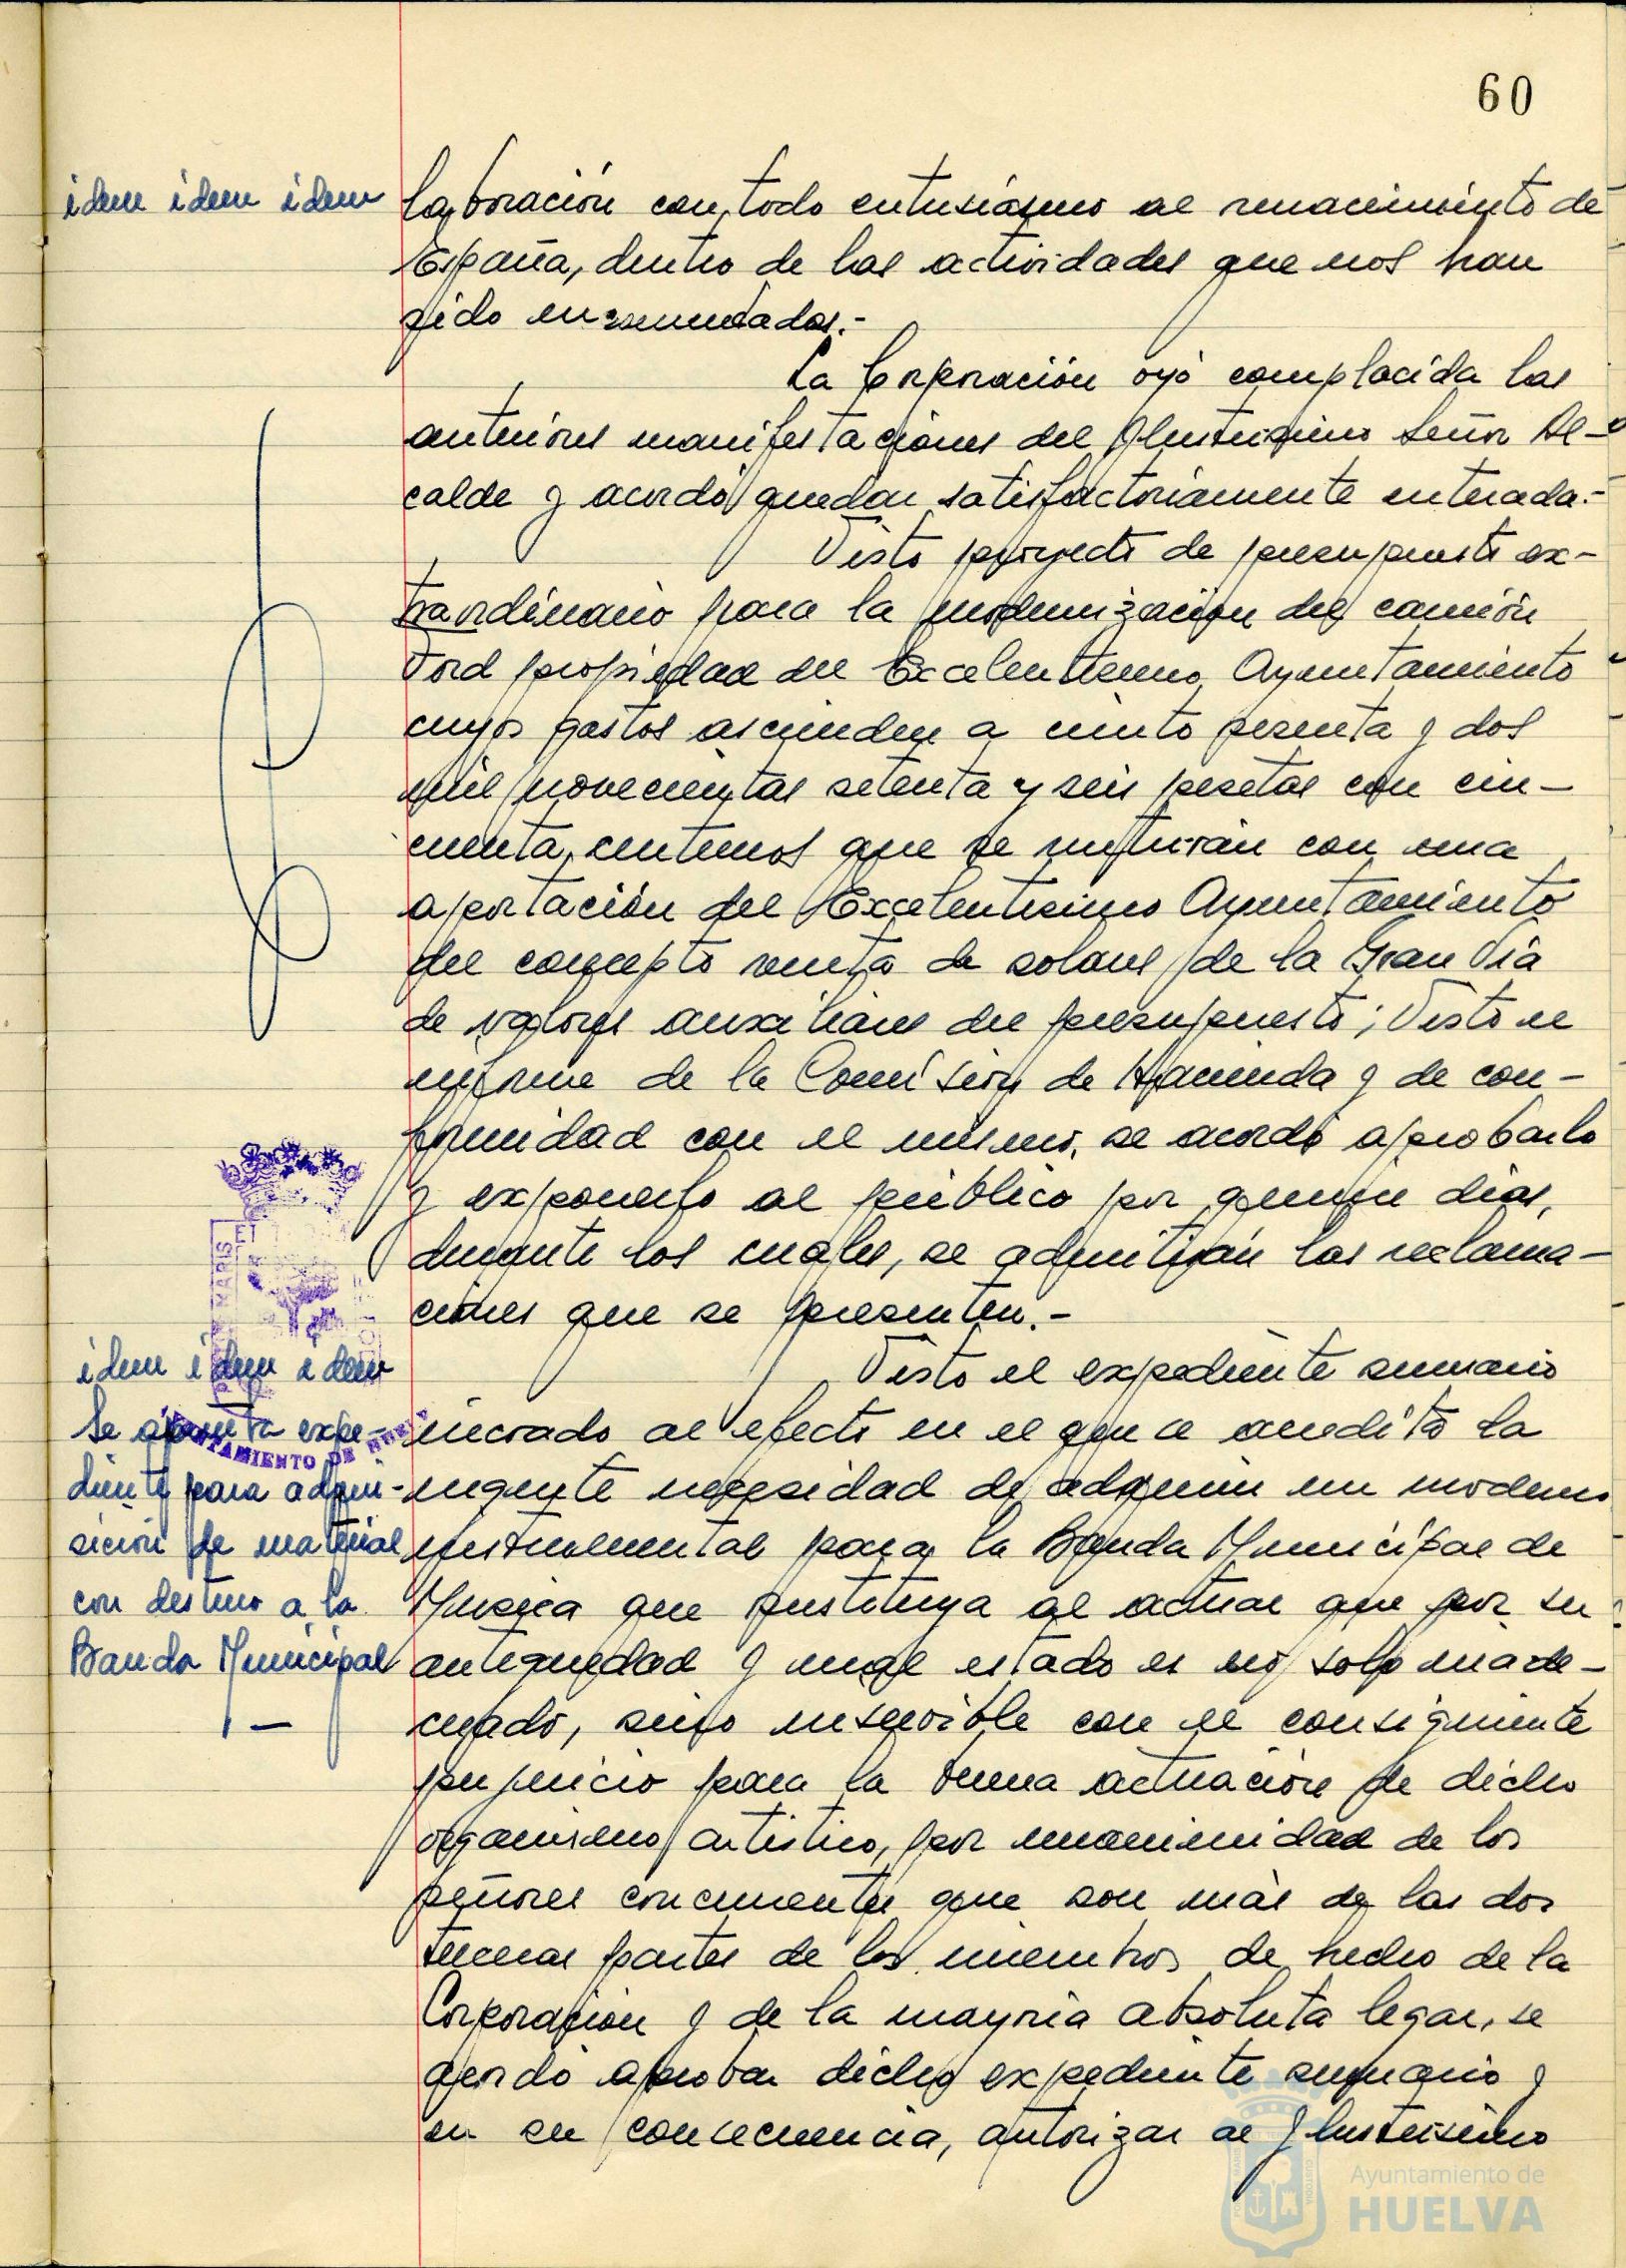 60
idem idem idem
laboración con todo entusiasmo al renacimiento de
España, dentro de las actividades que nos han
sido encomendadas.-
La Corporación oyó complacida las
anteriores manifestaciones del Ilustrisimo Señor Al-
calde y acordó quedar satisfactoriamente enterada.-
Visto proyecto de presupuesto ex-
traordinario para la modernización del camión
Ford propiedad del Excelentisimo Ayuntamiento
cuyos gastos ascienden a ciento sesenta y dos
mil novecientas setenta y seis pesetas con cin-
cuenta centimos que se nutrirán con una
aportación del Excelentisimo Ayuntamiento
del concepto venta de solares de la Gran Via
de valores auxiliares del presupuesto; Visto el
informe de la Comisión de Hacienda y de con-
formidad con el mismo, se acordó aprobarlo
y exponerlo al público por quince dias,
durante los cuales, se admitirán las reclama-
ciones que se presenten.-
idem idem idem
Se aprueba expe-
diente para adqui-
sición de material
con destino a la
Banda Municipal
Visto el expediente sumario
incoado al efecto en el que se acredita la
urgente necesidad de adquirir un moderno
instrumental para la Banda Municipal de
Musica que sustituya al actual que por su
antiguedad y mal estado es no solo inade-
cuado, sino inservible con el consiguiente
perjuicio para la buena actuación de dicho
organismo artistico, por unanimidad de los
señores concurrentes que son más de las dos
terceras partes de los miembros de hecho de la
Corporación y de la mayoria absoluta legal, se
acordó aprobar dicho expediente sumario y
en su consecuencia, autorizar al Ilustrisimo
AYUNTAMIENTO DE HUELVA
Ayuntamiento de
HUELVA